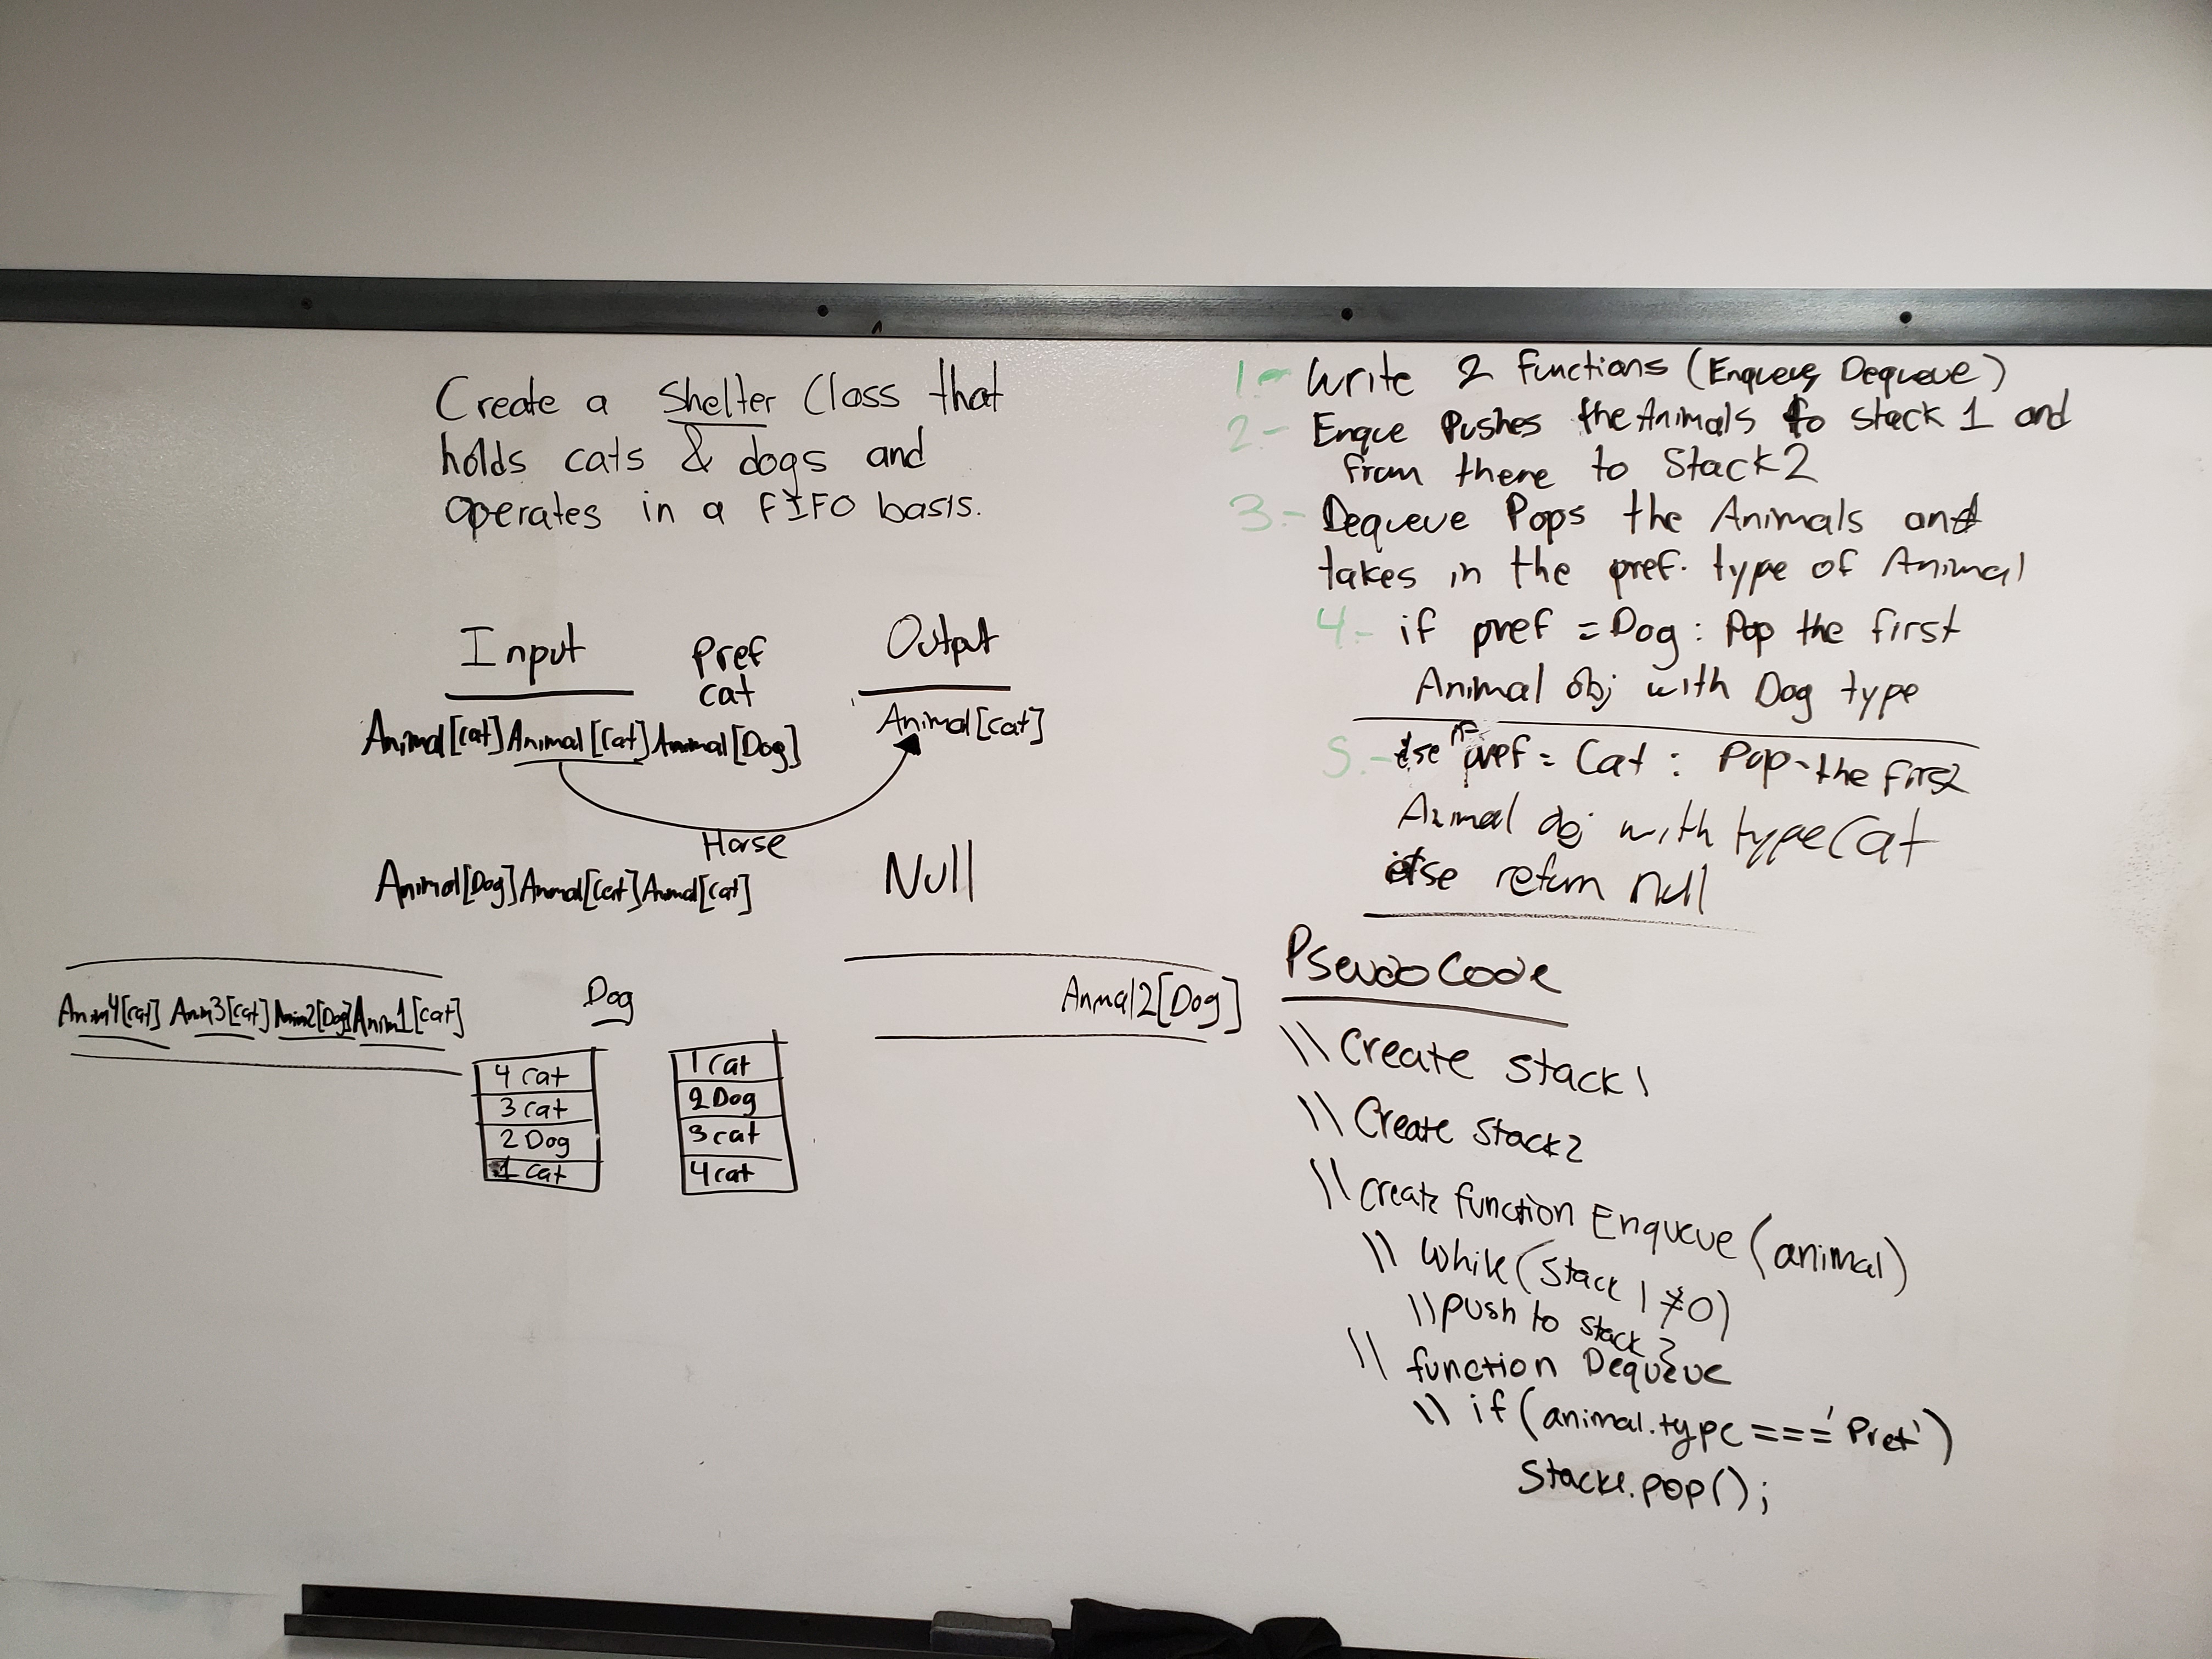 Create a Shelter Class that
holds cats & dogs and
operates in a FIFO basis.
Input
Pref
cat
Output
Animal[cat] Animal[Cat] Animal[Dog]
Animal[cat]
Horse
Animal[Dog] Animal[cat] Animal[cat]
Null
Anim4[cat] Anim3[cat] Anim2[Dog] Anim1[cat]
Dog
Anmal2[Dog]
4 cat
3 cat
2 Dog
1 cat
1 cat
2 Dog
3 cat
4 cat
1- Write 2 functions (Enqueue, Dequeue)
2- Enque Pushes the Animals to stack 1 and
from there to Stack 2
3- Dequeue Pops the Animals and
takes in the pref. type of Animal
4- if pref = Dog : Pop the first
Animal obj with Dog type
5- else if pref = Cat : Pop the first
Animal obj with type Cat
else return null
Pseudo Code
\\ Create stack 1
\\ Create Stack 2
\\ Create function Enqueue (animal)
\\ While (Stack 1 ≠ 0)
\\ push to stack 2
\\ function Dequeue
\\ if (animal.type === 'Pref')
.pop();